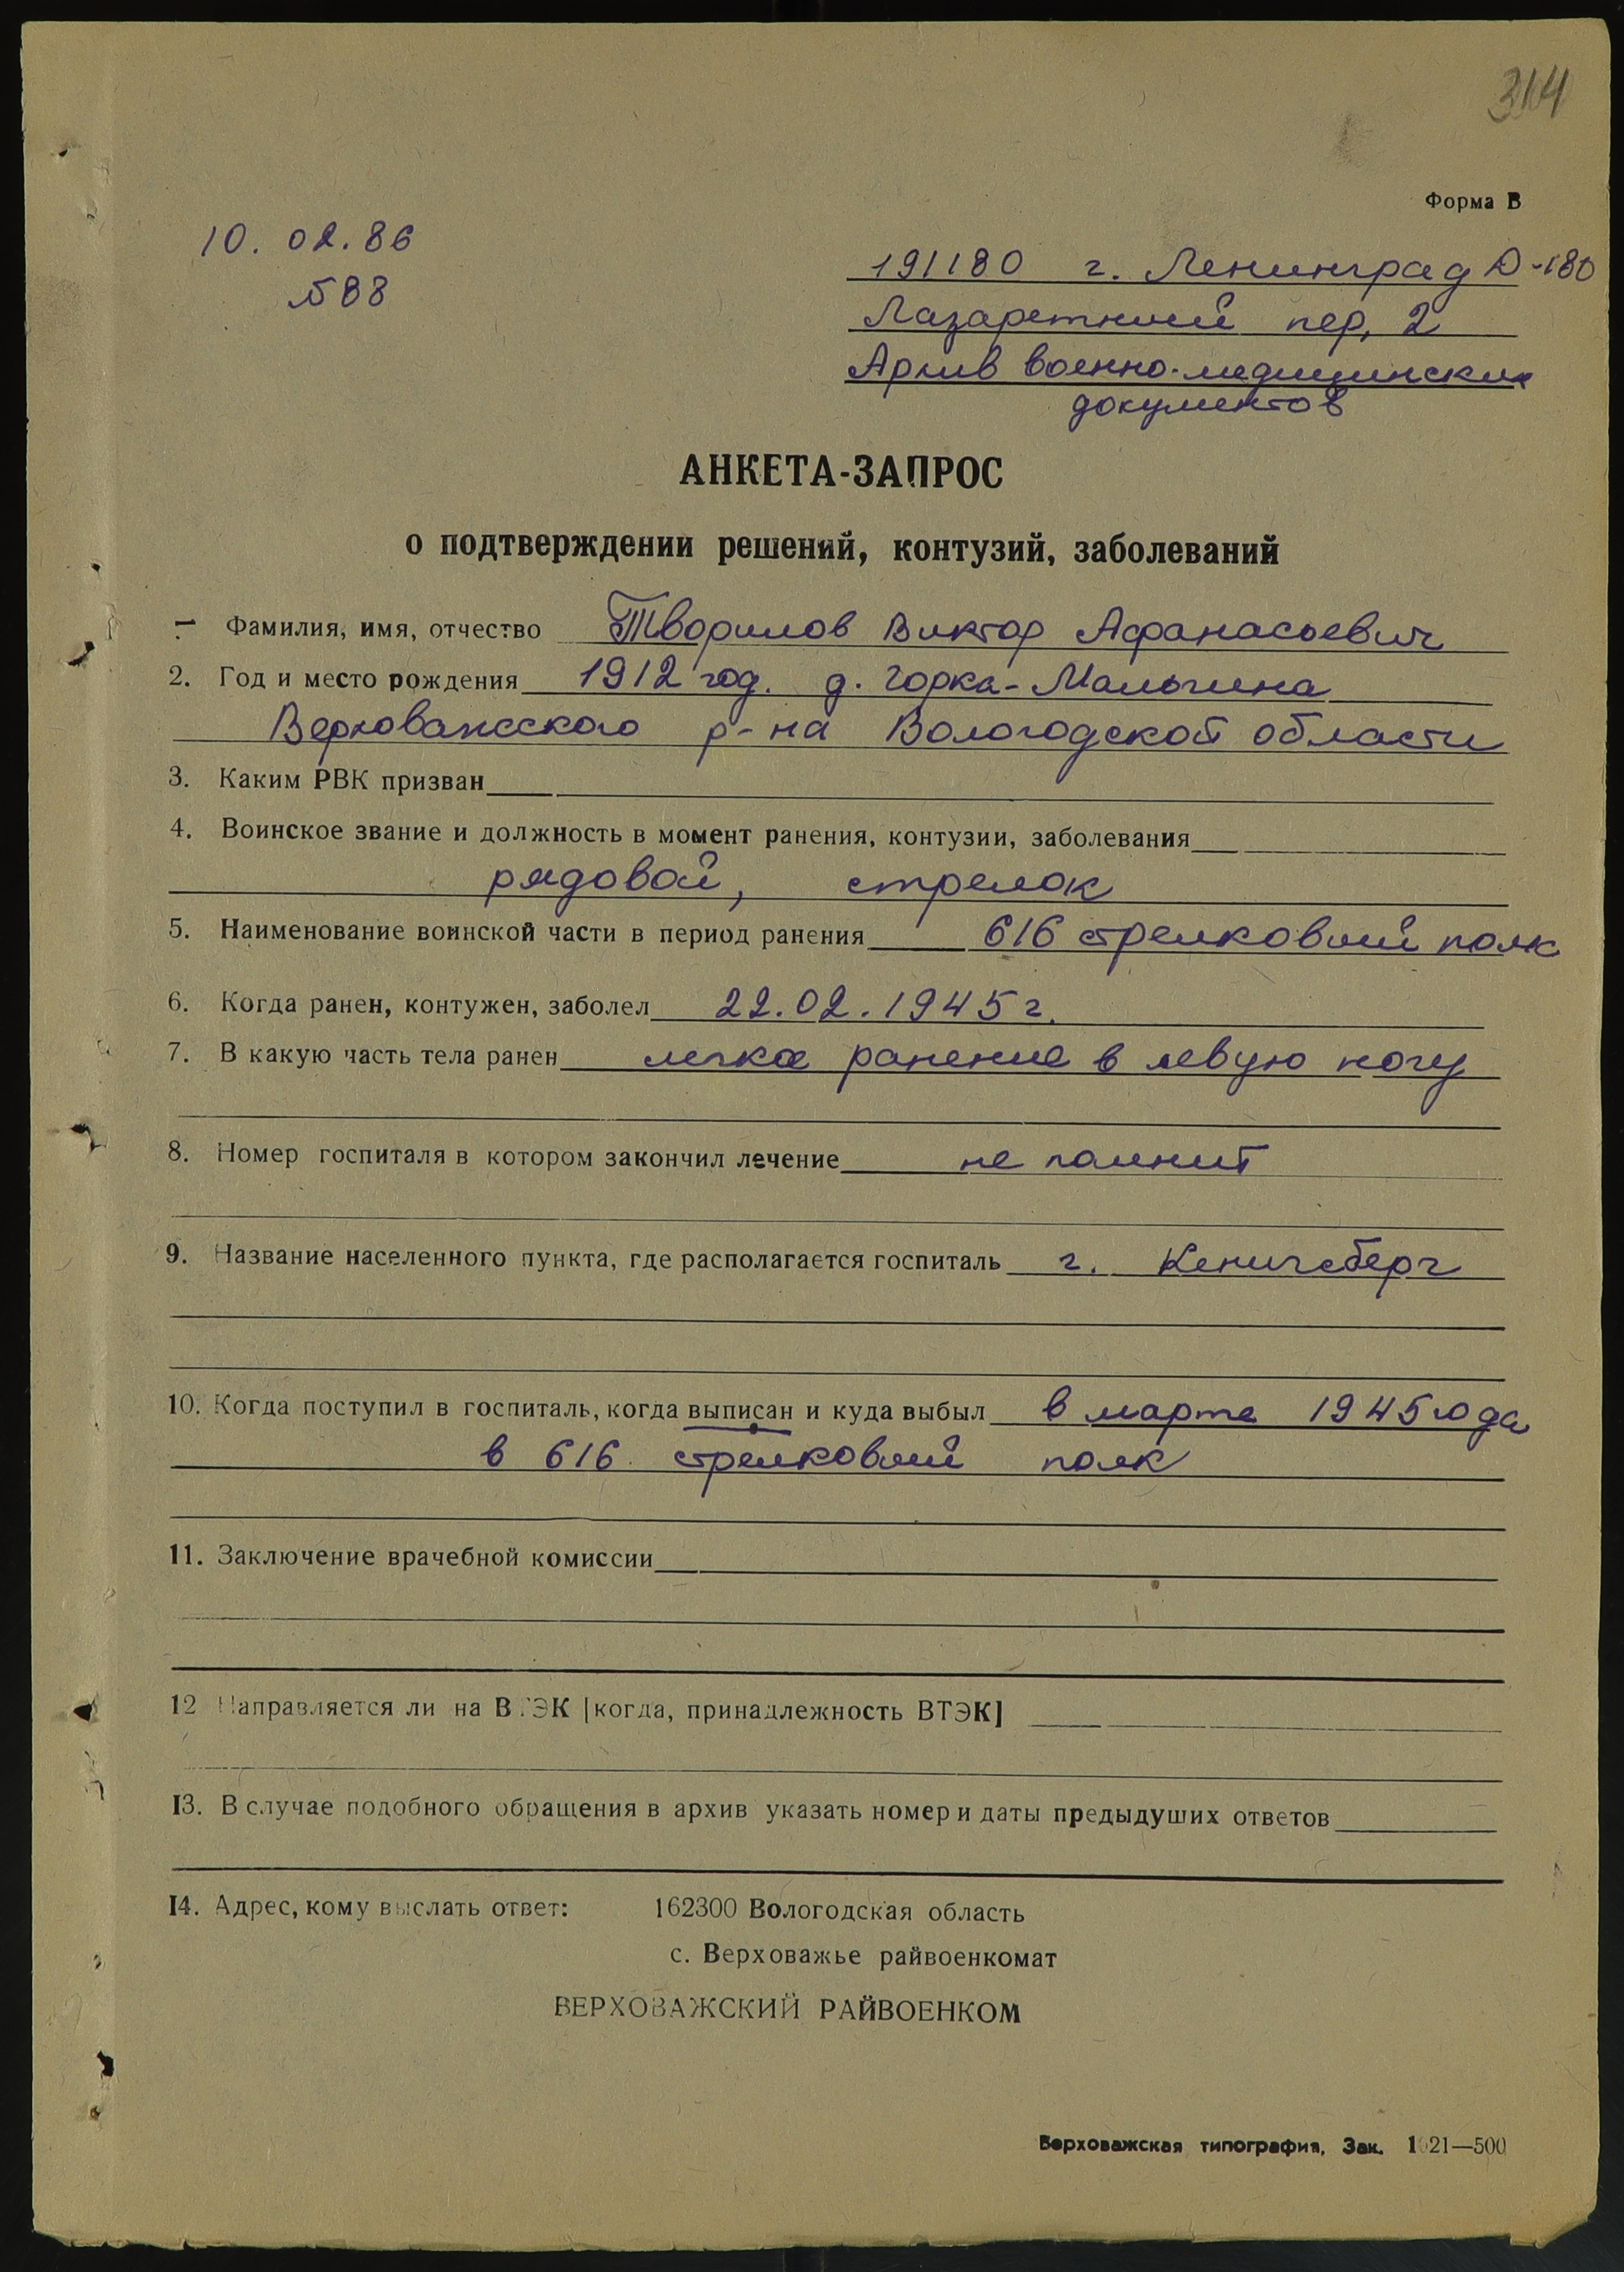 314
Форма В
10. 02. 86
588
191180 г. Ленинград Д-180
Лазаретный пер, 2
Архив военно-медицинских
документов
АНКЕТА-ЗАПРОС
о подтверждении решений, контузий, заболеваний
1 Фамилия, имя, отчество Творилов Виктор Афанасьевич
2. Год и место рождения 1912 год. д. Горка-Малыгина
Верховажсского р-на Вологодской области
3. Каким РВК призван
4. Воинское звание и должность в момент ранения, контузии, заболевания
рядовой, стрелок
5. Наименование воинской части в период ранения 616 стрелковый полк
6. Когда ранен, контужен, заболел 22.02.1945 г.
7. В какую часть тела ранен легкое ранение в левую ногу
8. Номер госпиталя в котором закончил лечение не помнит
9. Название населенного пункта, где располагается госпиталь г. Кенигсберг
10. Когда поступил в госпиталь, когда выписан и куда выбыл в марте 1945 года
в 616 стрелковый полк
11. Заключение врачебной комиссии
12 Направляется ли на ВТЭК [когда, принадлежность ВТЭК]
13. В случае подобного обращения в архив указать номер и даты предыдуших ответов
14. Адрес, кому выслать ответ: 162300 Вологодская область
с. Верховажье райвоенкомат
ВЕРХОВАЖСКИЙ РАЙВОЕНКОМ
Верховажская типография, Зак. 1021—500